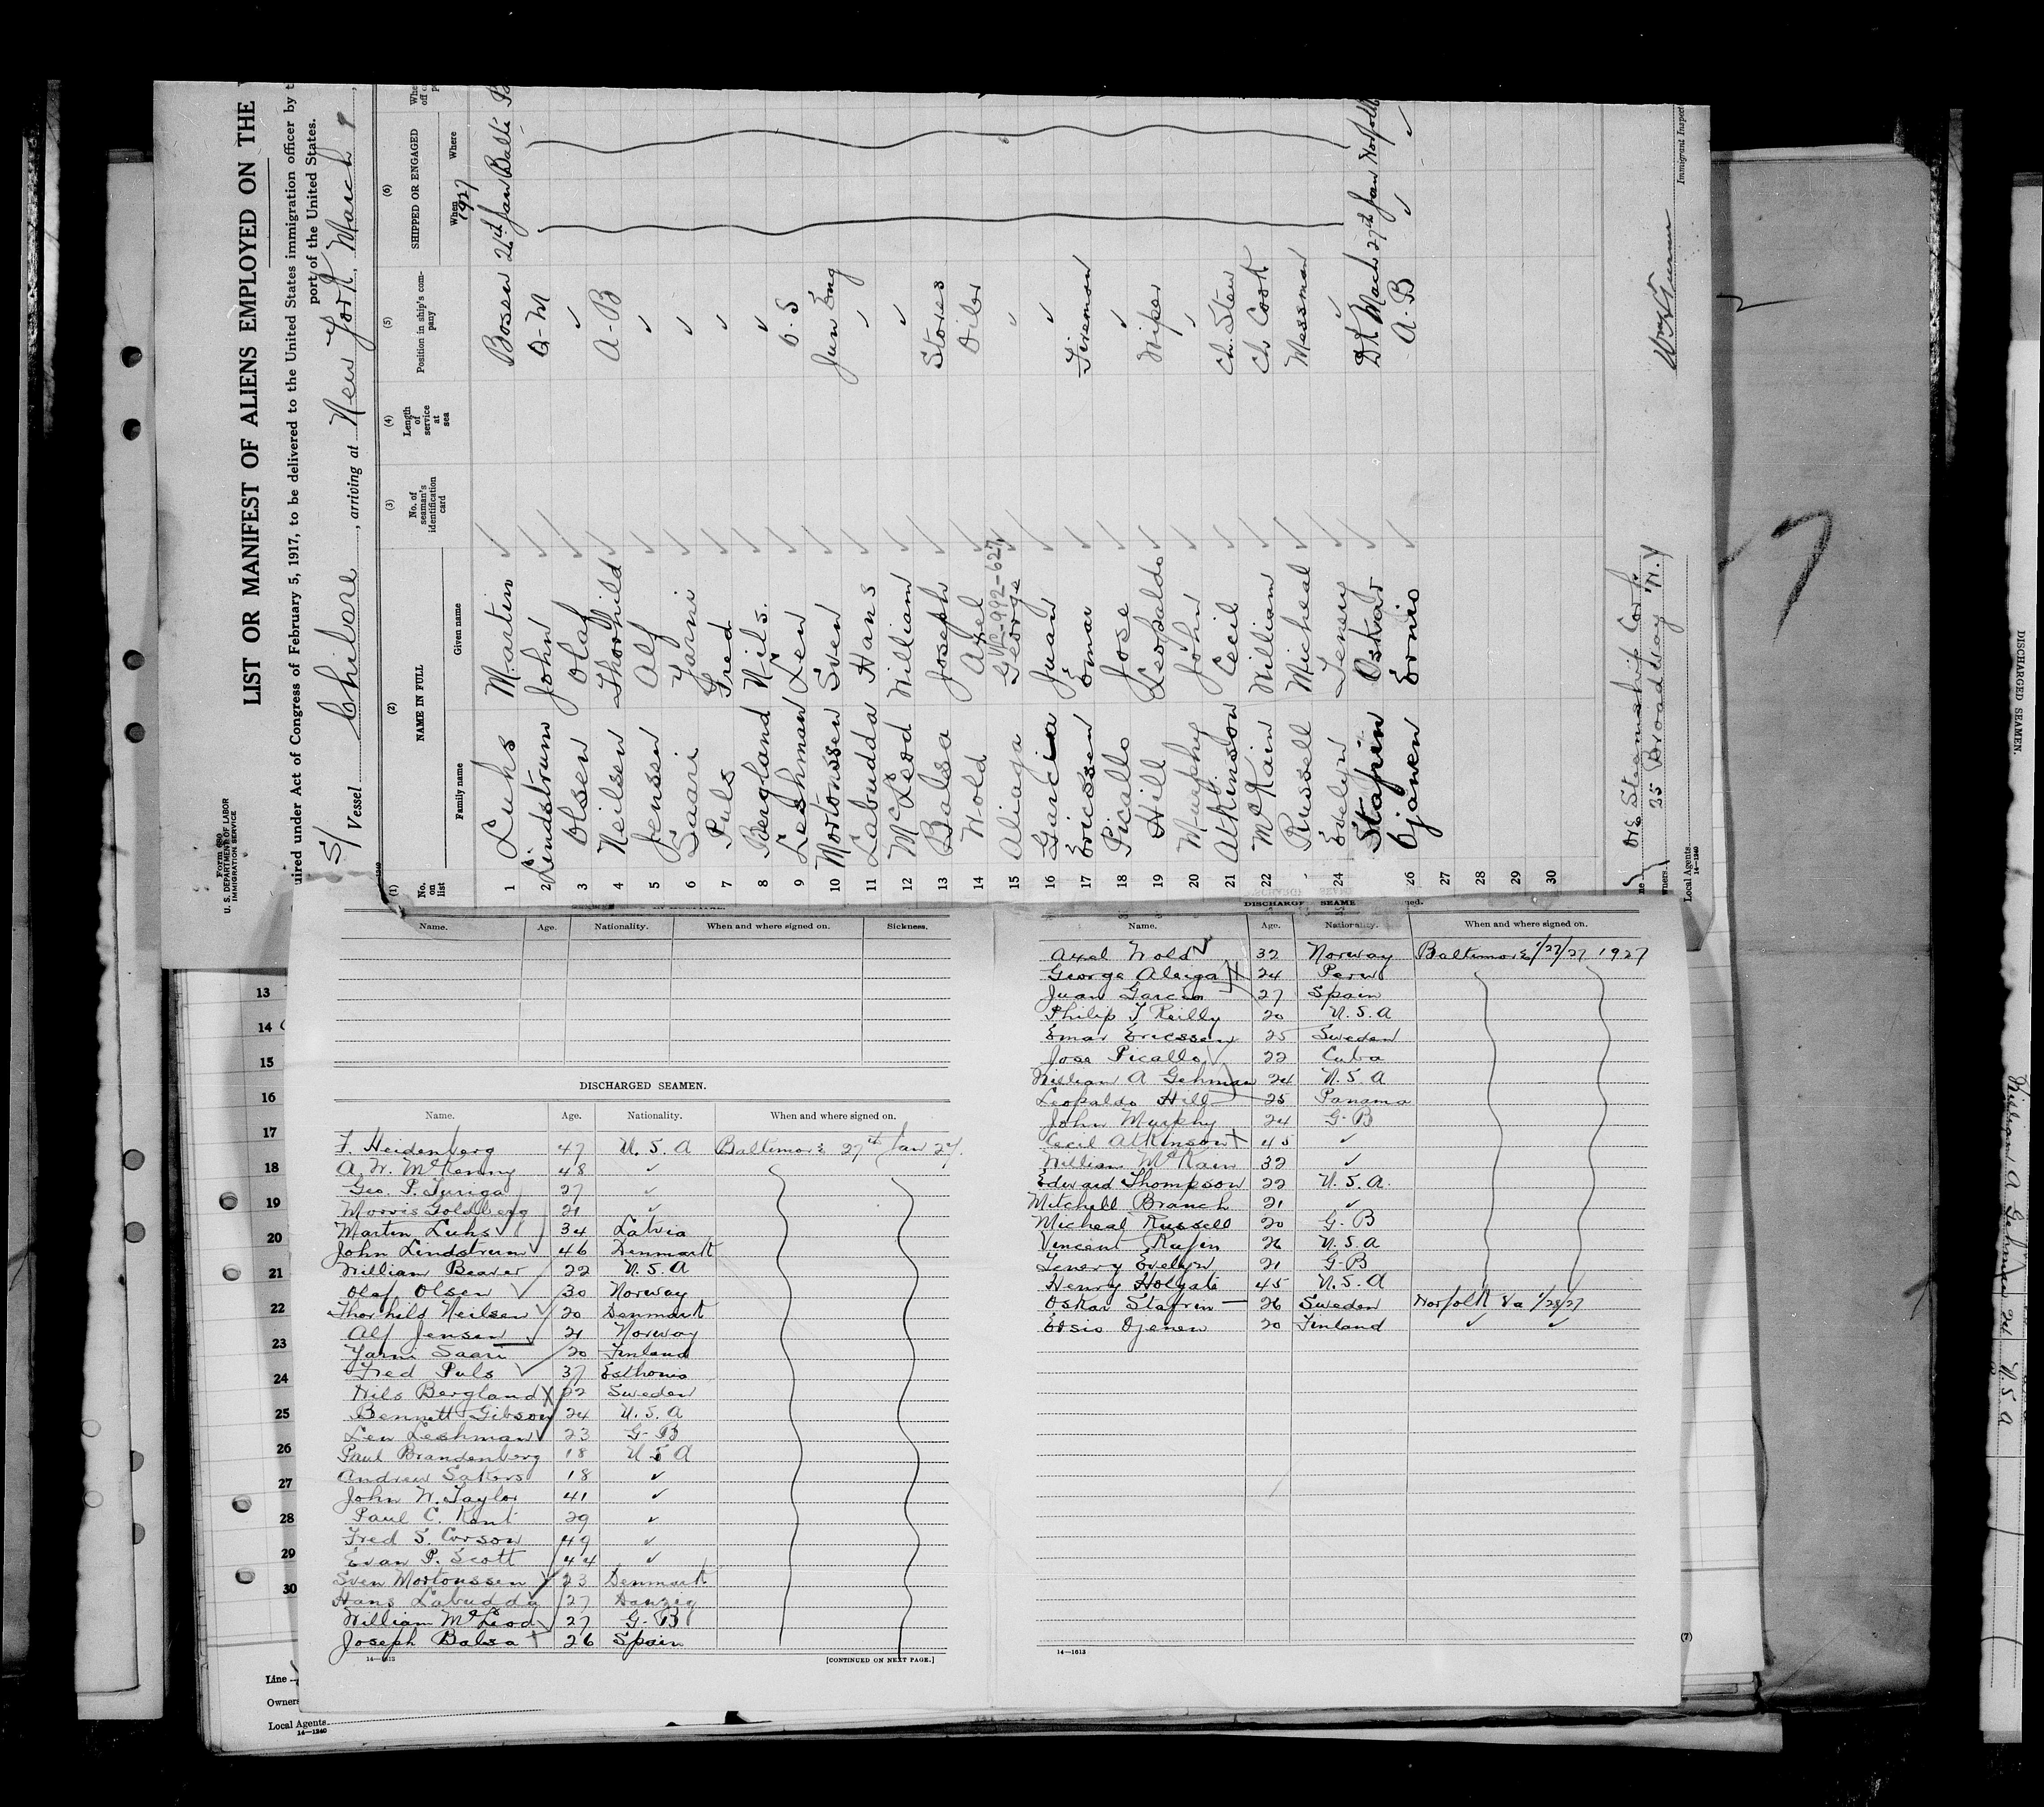 Form 680
U. S. DEPARTMENT OF LABOR
IMMIGRATION SERVICE
LIST OR MANIFEST OF ALIENS EMPLOYED ON THE
uired under Act of Congress of February 5, 1917, to be delivered to the United States immigration officer by t
port of the United States.
S/ Vessel Chilore, arriving at New York, March 9,
(1) (2) (3) (4) (5) (6)
No. on list NAME IN FULL No. of seaman's identification card Length of service at sea Position in ship's company SHIPPED OR ENGAGED
Family name Given name When Where
1927
1 Luhs Martin Bosen 26th Jan Balti
2 Lindstrum John Q-M
3 Olsen Olaf ✓
4 Neilsen Thorhild A-B
5 Jensen Alf ✓
6 Saari Yarni ✓
7 Puls Fred ✓
8 Bergland Nils. ✓
9 Leshman Len O.S
10 Mortonssen Sven Jun Eng
11 Labudda Hans ✓
12 McLeod William ✓
13 Balsa Joseph Stores
14 Wold Axel Oiler
-992-627
15 Aliaga George ✓
16 Garcia Juan ✓
17 Ericssen Emar Fireman
18 Picallo Jose ✓
19 Hill Leopaldo Wiper
20 Murphy John ✓
21 Atkinson Cecil Ch. Stew
22 McKain William Ch Cook
Russell Micheal Messman
24 Evelyn Tenery ✓
Stafrin Oskar Dk Mach 27th Jan Norfolk
26 Ojanen A.B ✓ ✓
27
28
29
30
Ore Steamship Corp.
25 Broadway N.Y
wners.
Local Agents
14—1240
Immigrant Inspect
Name. Age. Nationality. When and where signed on. Sickness.
DISCHARGED SEAMEN.
Name. Age. Nationality. When and where signed on.
F. Heidenberg 47 U.S.A Baltimore 27th Jan 27.
A. W. McKenny 48 ✓
Geo. P. Turiga 27 ✓
Morris Goldberg 21 ✓
Martin Luhs 34 Latvia
John Lindstrum 46 Denmark
William Beaver 22 U.S.A
Olaf Olsen 30 Norway
Thorhild Neilsen 20 Denmark
Alf Jensen 21 Norway
Yarni Saari 20 Finland
Fred Puls 37 Esthonia
Nils Bergland 22 Sweden
Bennett Gibson 24 U.S.A
Len Leshman 23 G-B
Paul Brandenberg 18 U S A
Andrew Sakers 18 ✓
John W. Taylor 41 ✓
Paul C. Kent 29 ✓
Fred S. Corson 49 ✓
Evan P. Scott 44 ✓
Sven Mortonssen 23 Denmark
Hans Labudda 27 Danzig
William McLeod 27 G-B
Joseph Balsa 26 Spain
14—1613 [CONTINUED ON NEXT PAGE.]
DISCHARG SEAME
Name. Age. Nationality. When and where signed on.
Axel Wold 32 Norway Baltimore 1/27/27 1927
George Aleiga 24 Peru
Juan Garcia 27 Spain
Philip T Reilly 20 U.S.A
Emar Ericssen 25 Sweden
Jose Picallo 22 Cuba
William A Gehman 24 U.S.A
Leopaldo Hill 25 Panama
John Murphy 24 G-B
Cecil Atkinson 45 ✓
William McKain 32 ✓
Edward Thompson 22 U.S.A.
Mitchell Branch 21 ✓
Micheal Russell 20 G-B
Vincent Rafin 26 U.S.A
Tenery Evelyn 21 G-B
Henry Holgate 45 U.S.A
Oskar Stafrin 26 Sweden Norfolk Va 1/28/27
Ojenen 20 Finland ✓ ✓
14—1613
(7)
13
14
15
16
17
18
19
20
21
22
23
24
25
26
27
28
29
30
Line
Owners
Local Agents
14—1240
7
DISCHARGED SEAMEN.
William A Gehman 24 U.S.A